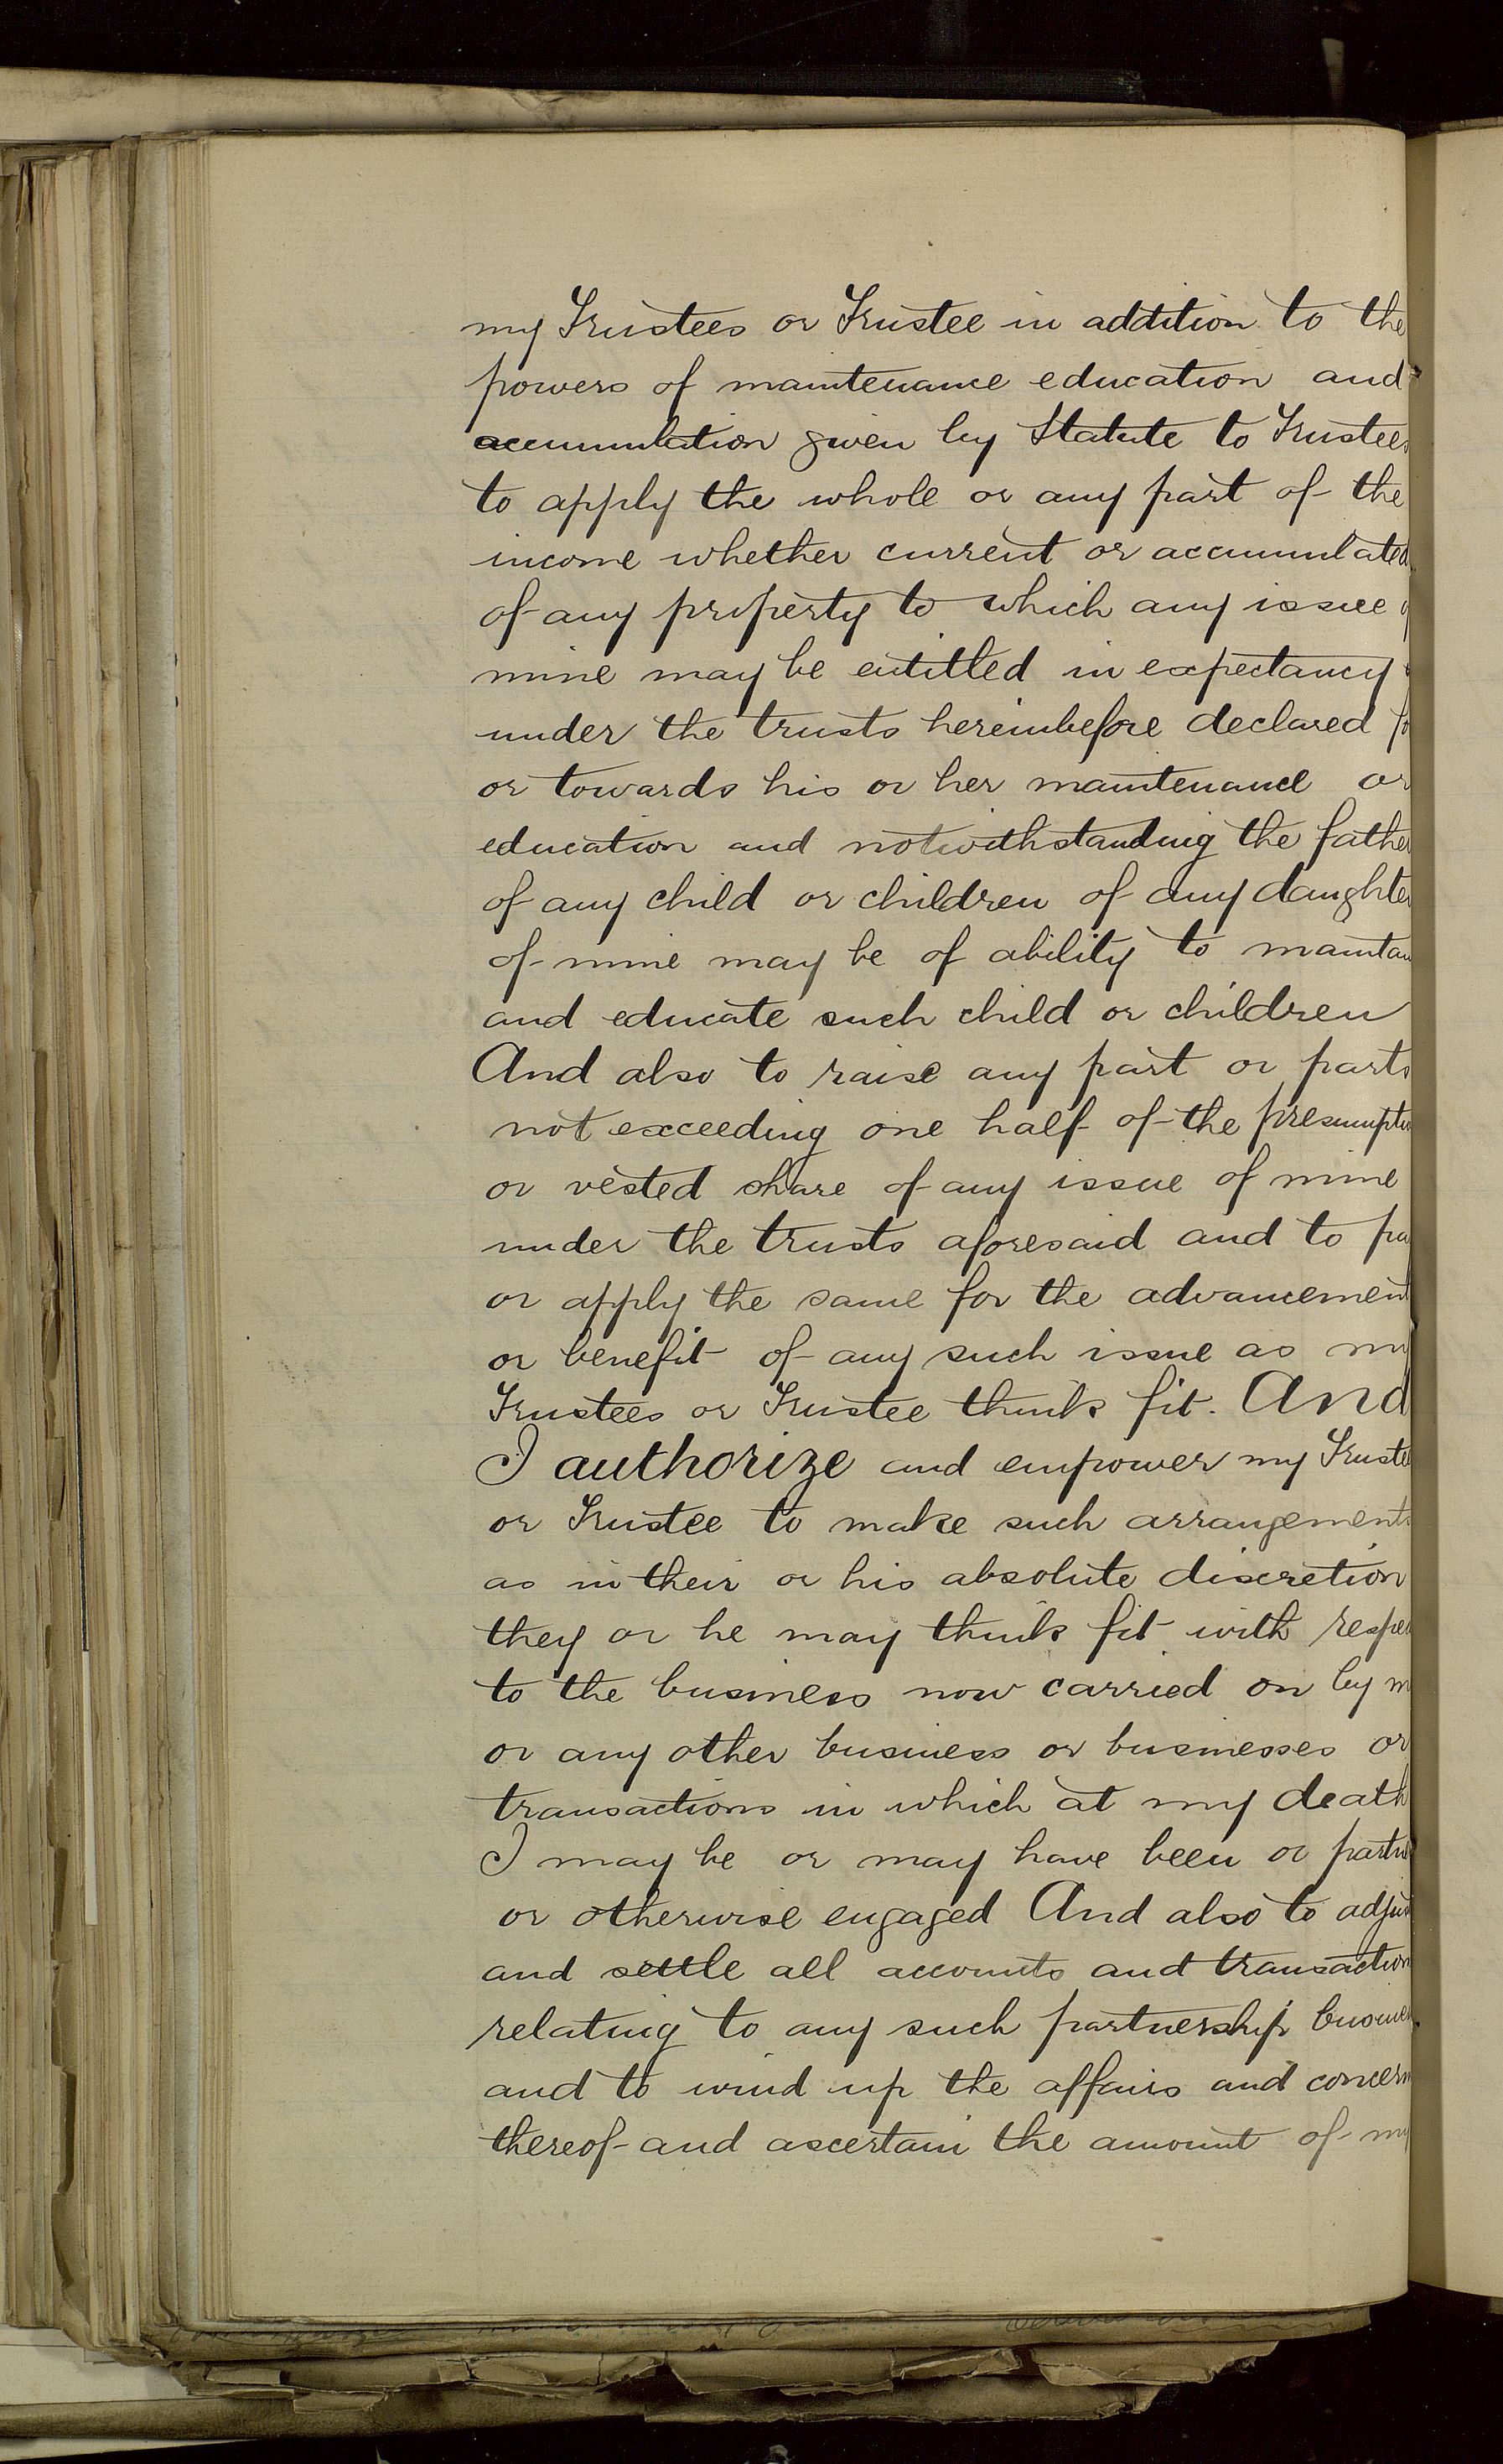 my Trustees or Trustee in addition to the
powers of maintenance education and
accumulation given by Statute to Trustees
to apply the whole or any part of the
income whether current or accumulated
of any property to which any issue
mine may be entitled in expectancy
under the trusts hereinbefore declared
or towards his or her maintenance or
education and notwithstanding the father
of any child or children of any daughter
of mine may be of ability to maintain
and educate such child or children
And also to raise any part or parts
not exceeding one half of the presumptiv
or vested share of any issue of mine
under the trusts aforesaid and to pa
or apply the same for the advancement
or benefit of any such issue as my
Trustees or Trustee think fit. And
I authorize and empower my Truste
or Trustee to make such arrangements
as in their or his absolute discretion
they or he may think fit with respec
to the business now carried on by m
or any other business or businesses or
transactions in which at my death
I may be or may have been or partn
or otherwise engaged And also to adjus
and settle all accounts and transaction
relating to any such partnership business
and to wind up the affairs and concern
thereof and ascertain the amount of my